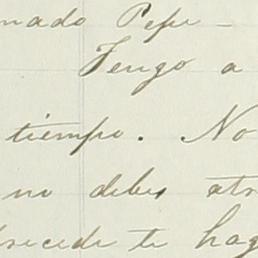 mado Pepe -
Tengo a
tiempo. No
no debes atr
precede te hag